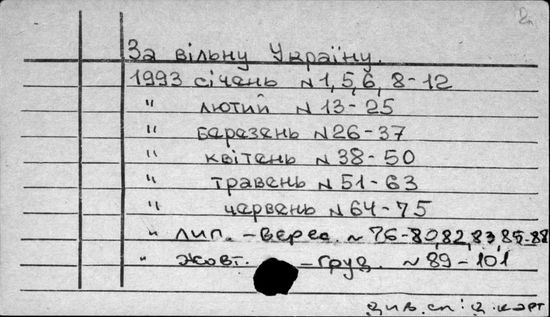 За вільну Україну.
1993 січень N1,5,6,8-12
" лютий N13-25
" березень N26-37
" квітень N38-50
" травень N51-63
" червень N64-75
" лип.-верес. N76-80,82,83,85-88
" жовт. -груд. N89-101
див. сл: 2 карт